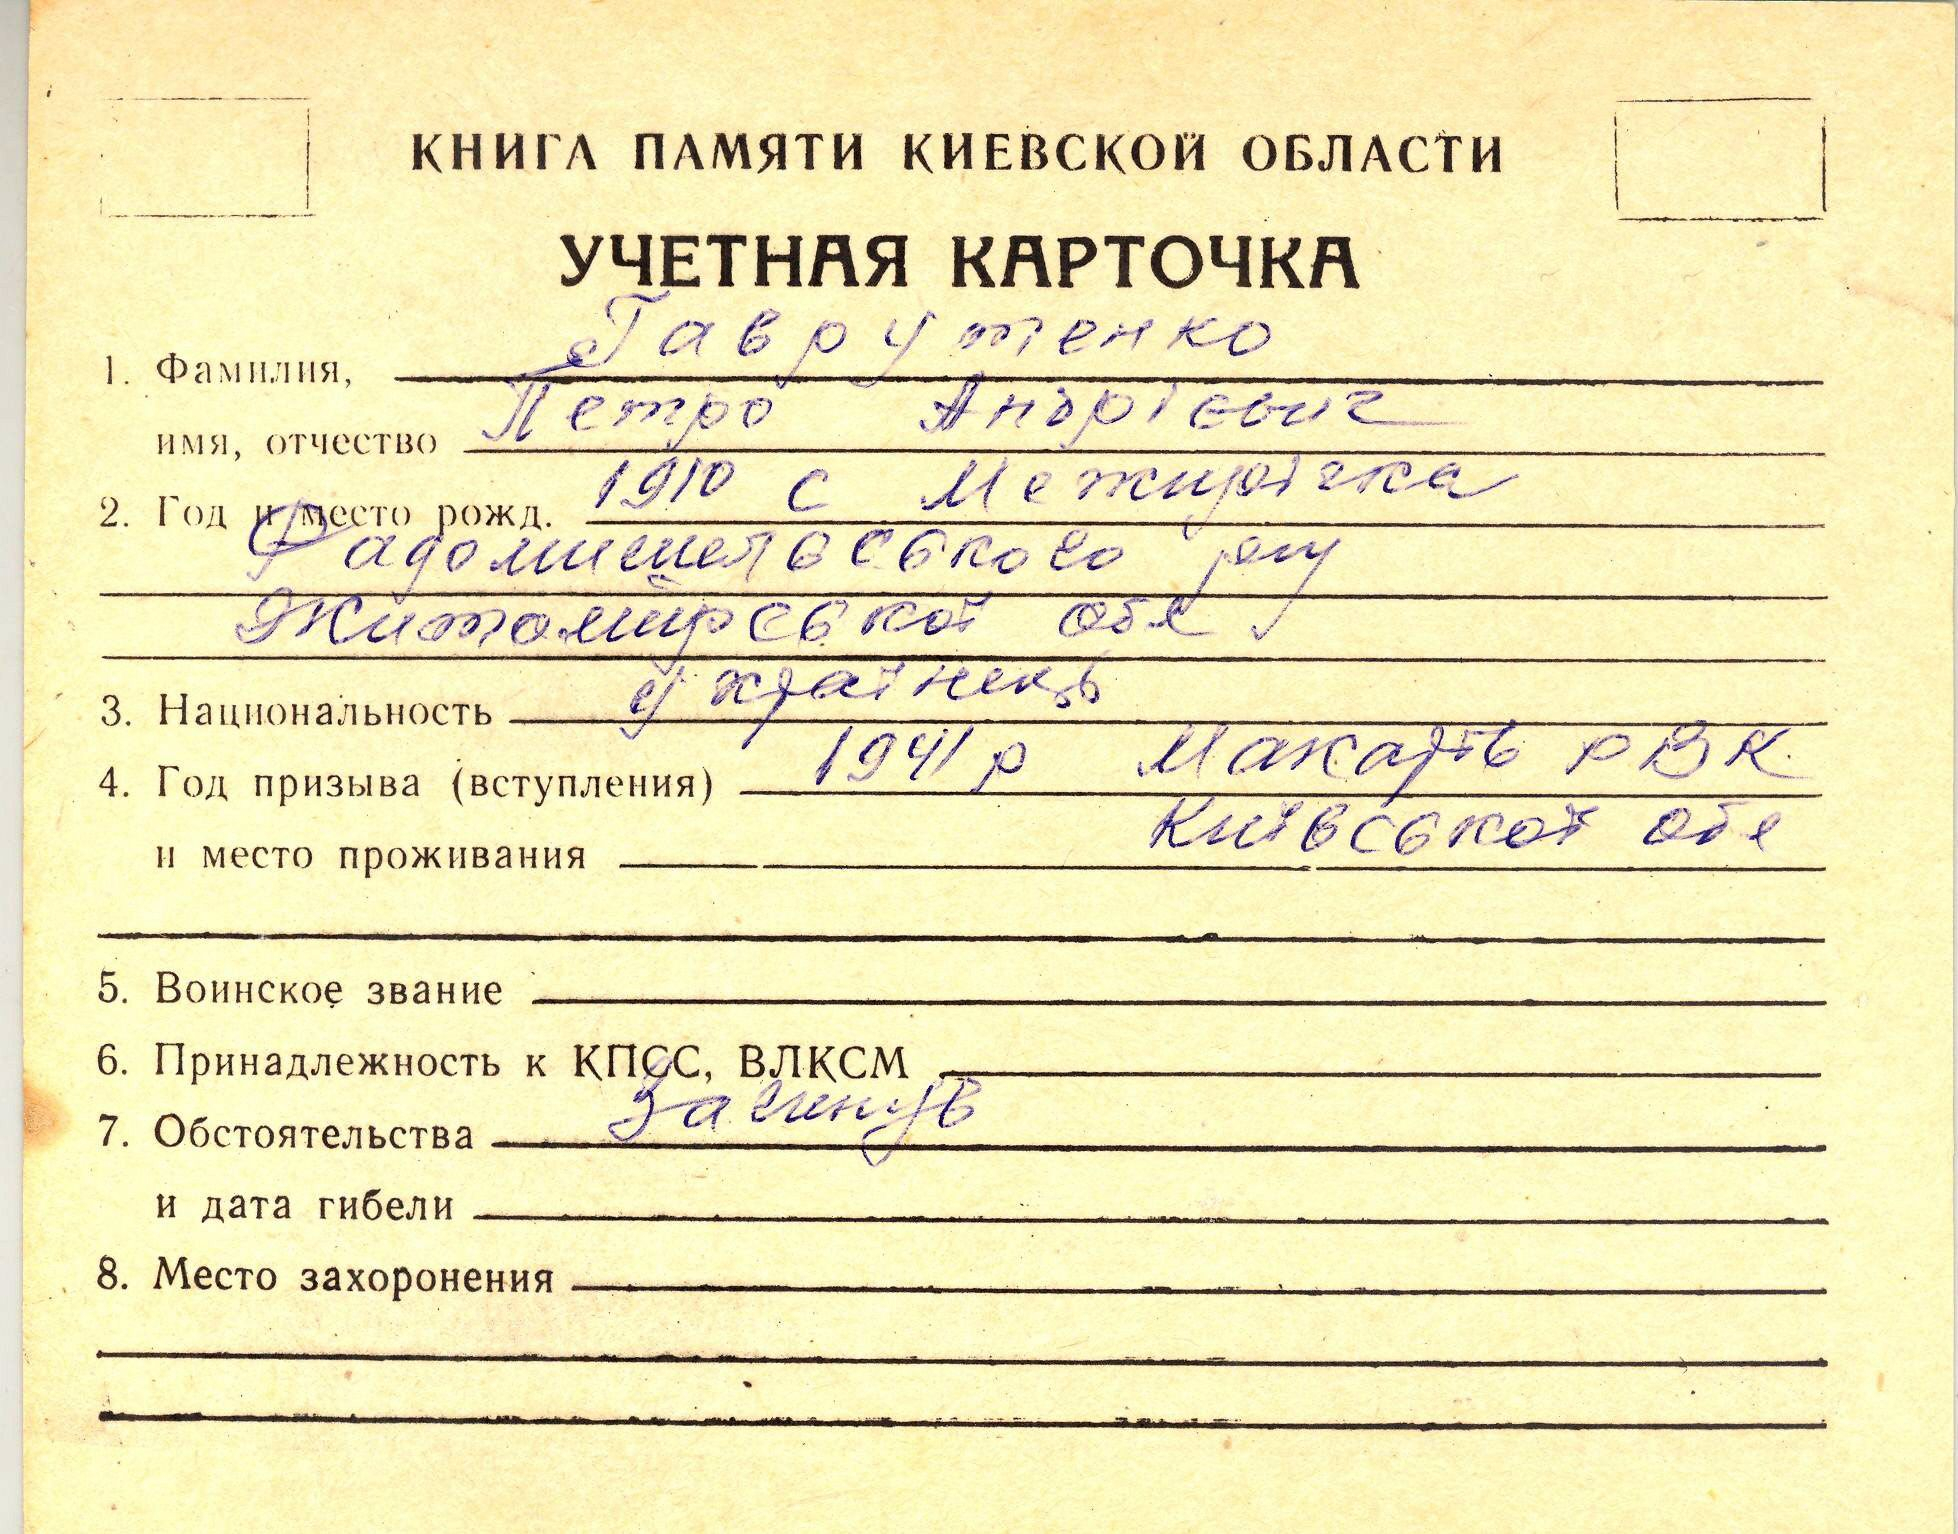 КНИГА ПАМЯТИ КИЕВСКОЙ ОБЛАСТИ
УЧЕТНАЯ КАРТОЧКА
1. Фамилия, Гаврутенко
имя, отчество Петро Андрієвич
2. Год и место рожд. 1910 с Межирічка
Радомишельського р-ну
Житомирської обл
3. Национальность українець
4. Год призыва (вступления) 1941 р Макарів РВК
и место проживания Київської обл
5. Воинское звание
6. Принадлежность к КПСС, ВЛКСМ
7. Обстоятельства Загинув
и дата гибели
8. Место захоронения